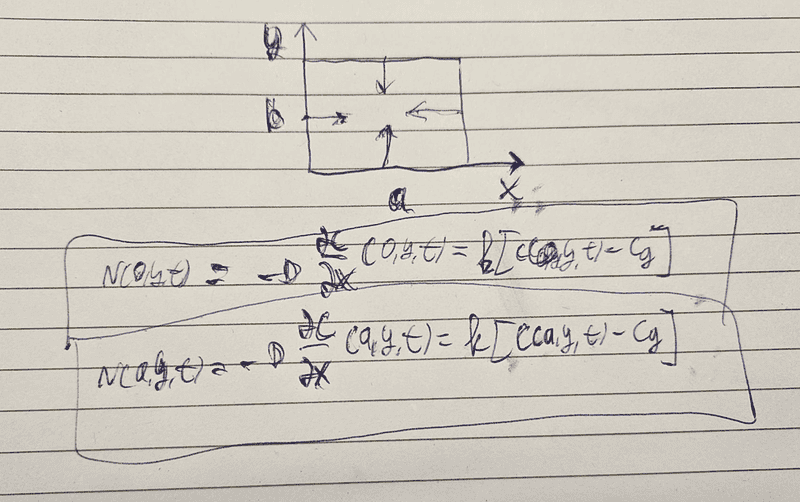 y
b
a
x
N(0,y,t) = -D ∂C/∂x (0,y,t) = k[C(0,y,t) - Cg]
N(a,y,t) = - D ∂C/∂x (a,y,t) = k[C(a,y,t) - Cg]